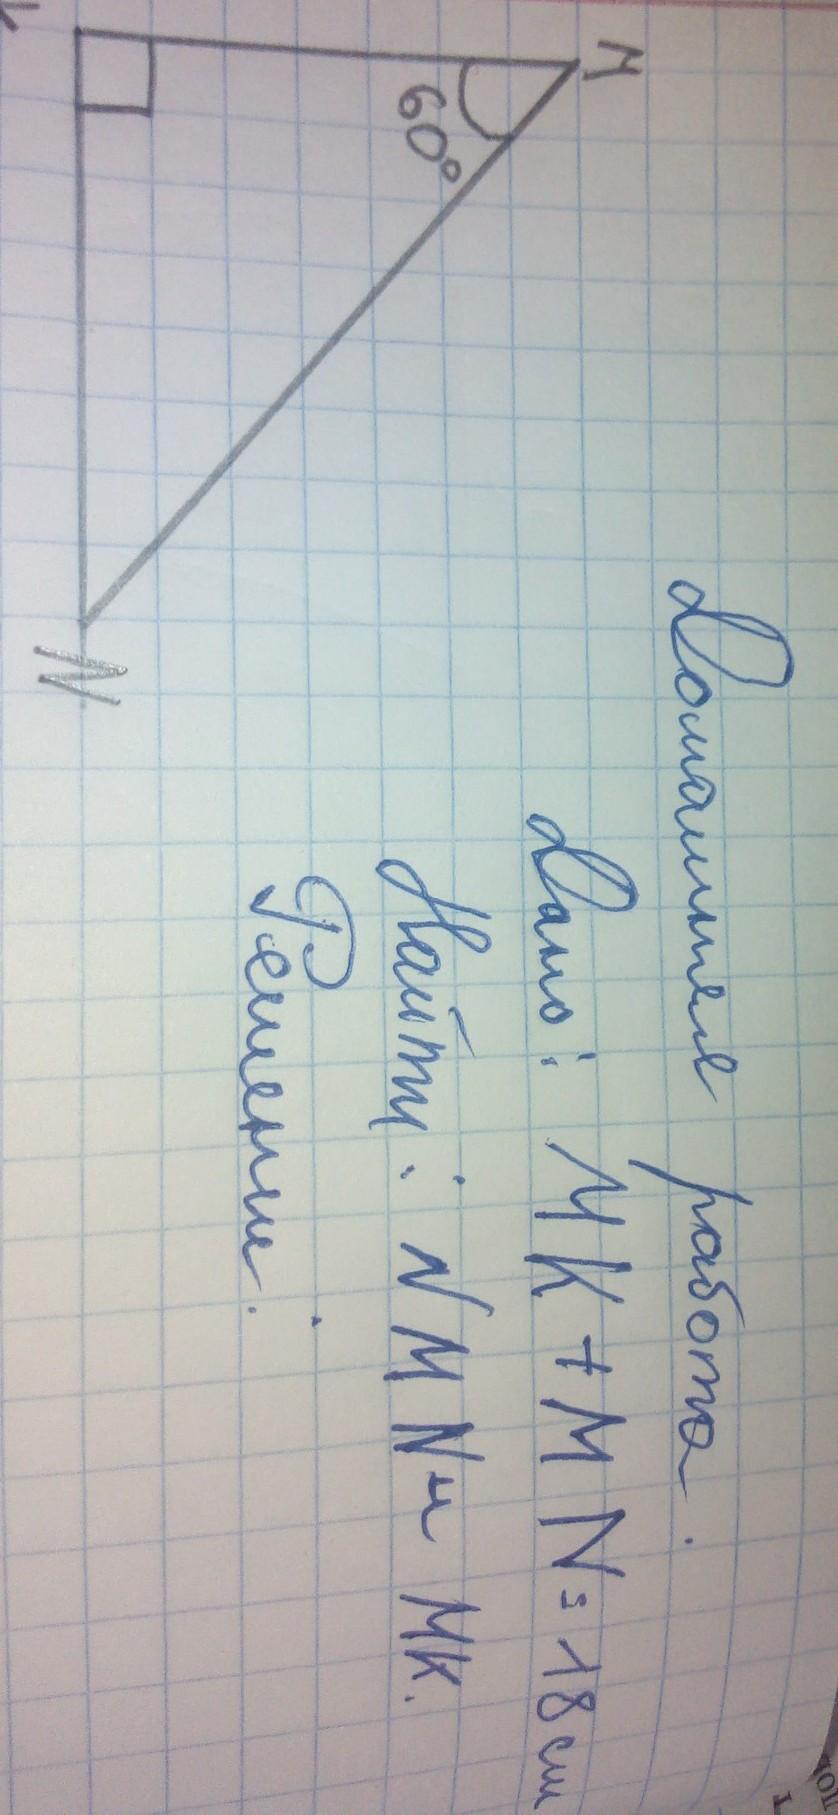 Домашняя работа.
Дано: MK + MN = 18 см
Найти: NMN и MK.
Решение:
M
60°
N